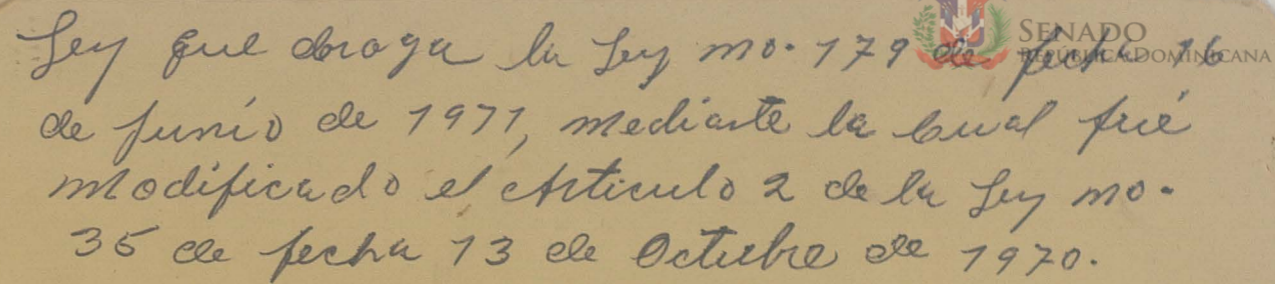 Ley que droga la Ley no. 179 de fecha 16
de junio de 1971, mediante la cual fué
modificado el Articulo 2 de la Ley no.
35 de fecha 13 de Octubre de 1970.
SENADO
REPÚBLICA DOMINICANA